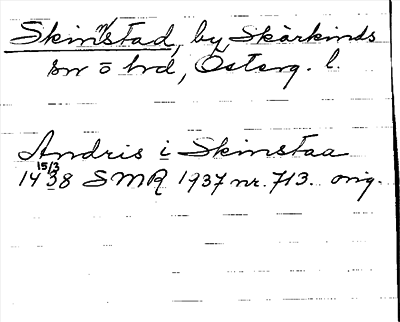 Skinnstad, by, Skärkinds
sn o hd, Österg. l.
Andris i Skinstaa
15/3
1438 SMR 1937 nr. 713. orig.